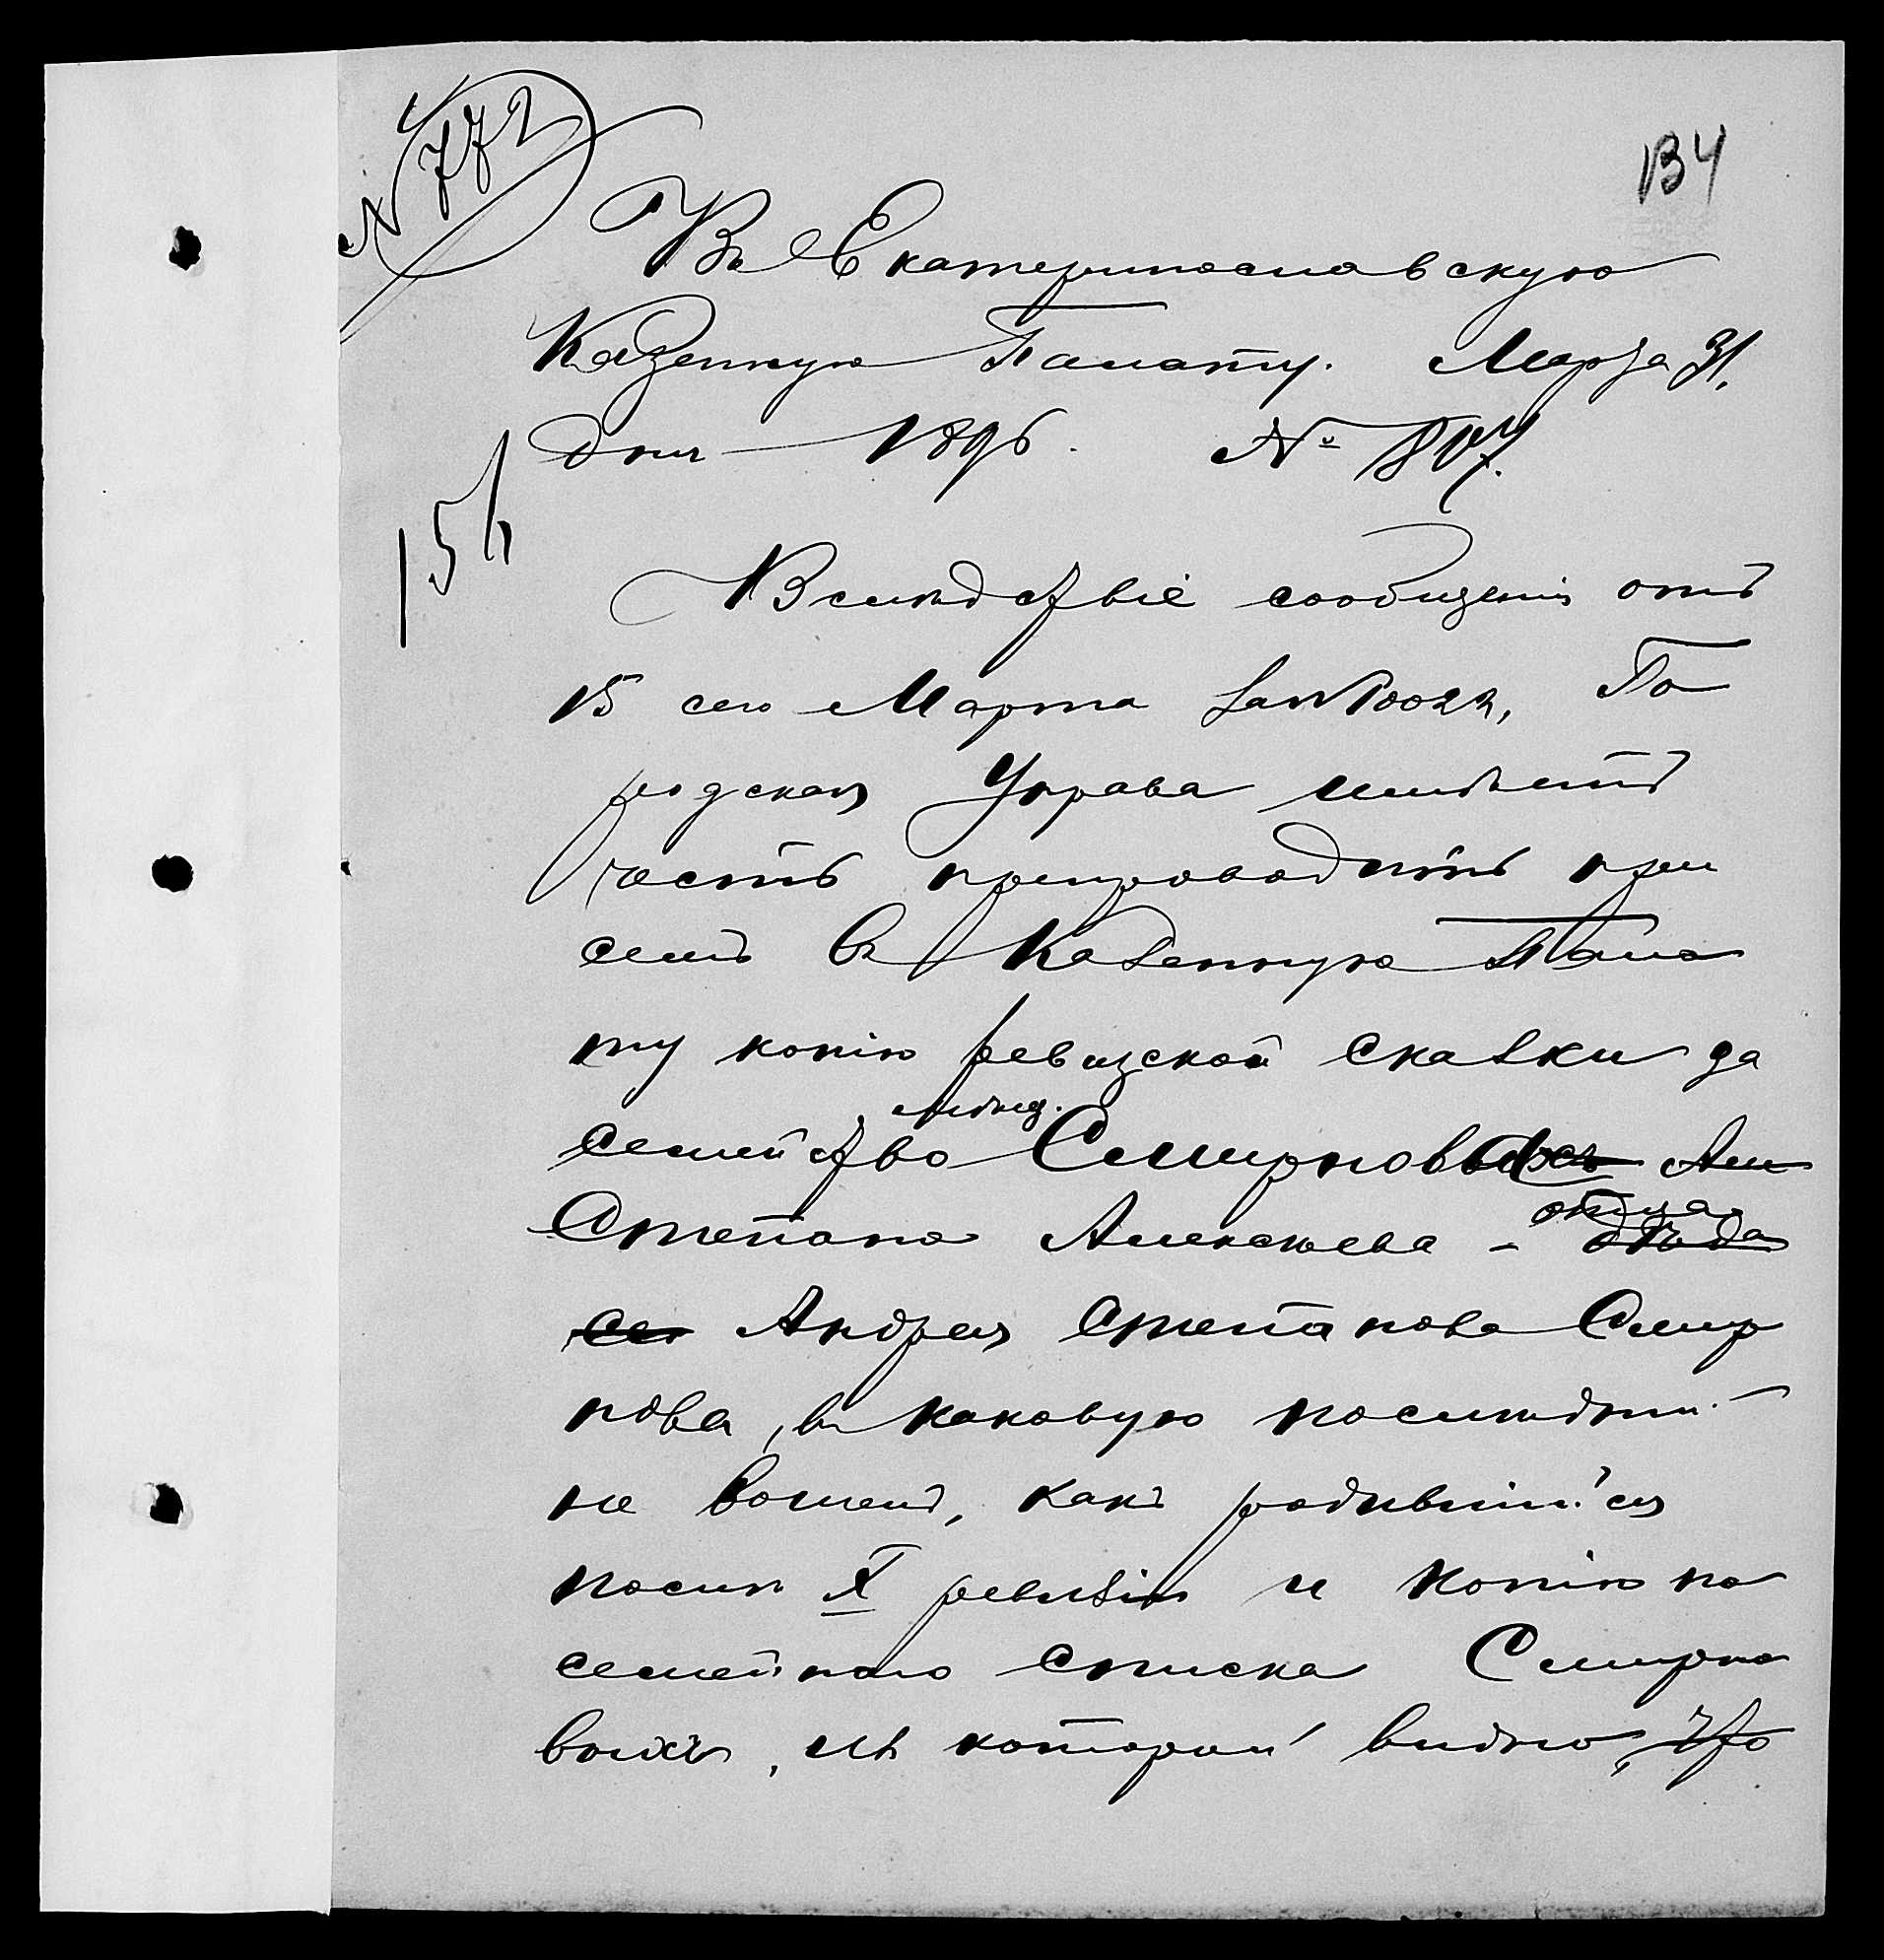 № 772
134
Въ Екатеринославскую
Казенную Палату. Марта 31.
дня 1896. № 807.
156
Вслѣдствіе сообщенія отъ
15 сего Марта за № 10022, Го
родская Управа имѣетъ
честь препроводить при
семъ въ Казенную Пала
ту копію ревизской сказки за
мѣщ.
семейство Смирновыхъ Ал
отца
Степана Алексѣева - дѣда
его Андрея Степанова Смир
нова, въ каковую послѣдній
не вошелъ, какъ родившійся
послѣ X ревизіи и копію по
семейнаго списка Смирно
выхъ, изъ которой видно, что